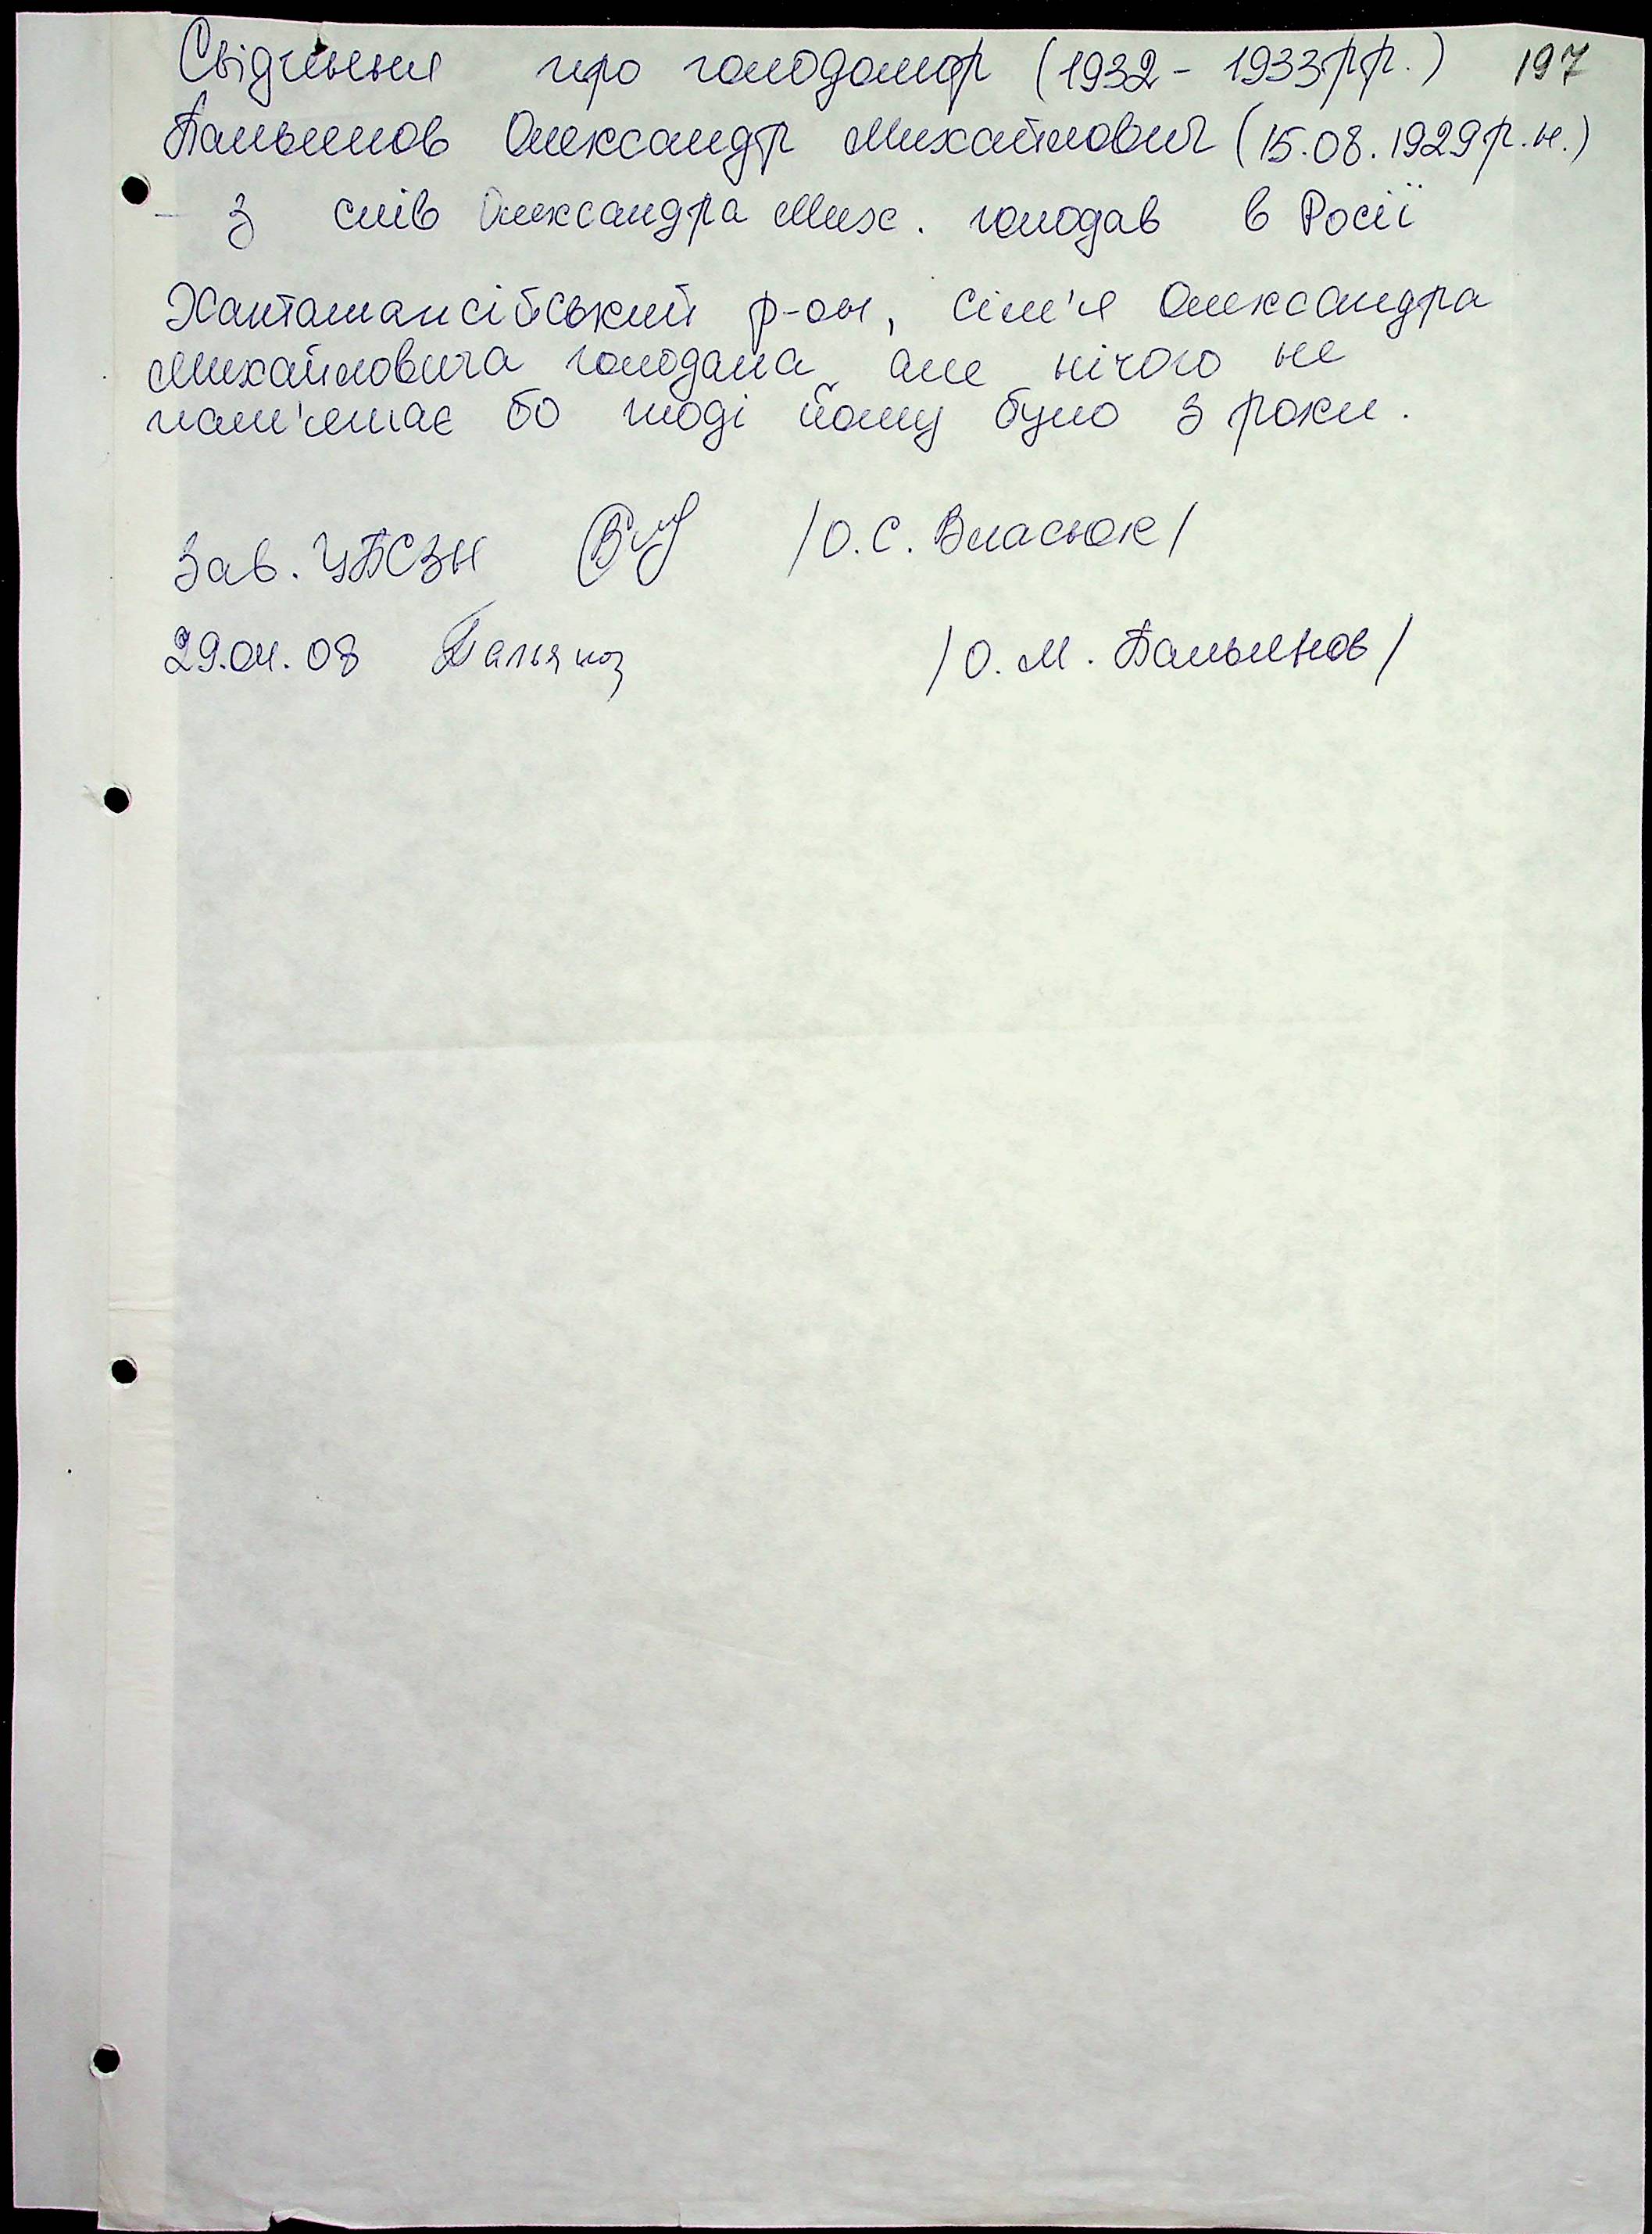 Свідчення про голодомор (1932 - 1933 рр.) 197
Пальянов Олександр Михайлович (15.08.1929 р.н.)
- З слів Олександра Мих. голодав в Росії
Хантомансійський р-он, сім'я Олександра
Михайловича голодала але нічого не
пам'ятає бо тоді йому було 3 роки.
Зав. УПСЗН /О.С. Власюк/
29.04.08 Пальянов /О.М. Пальянов/